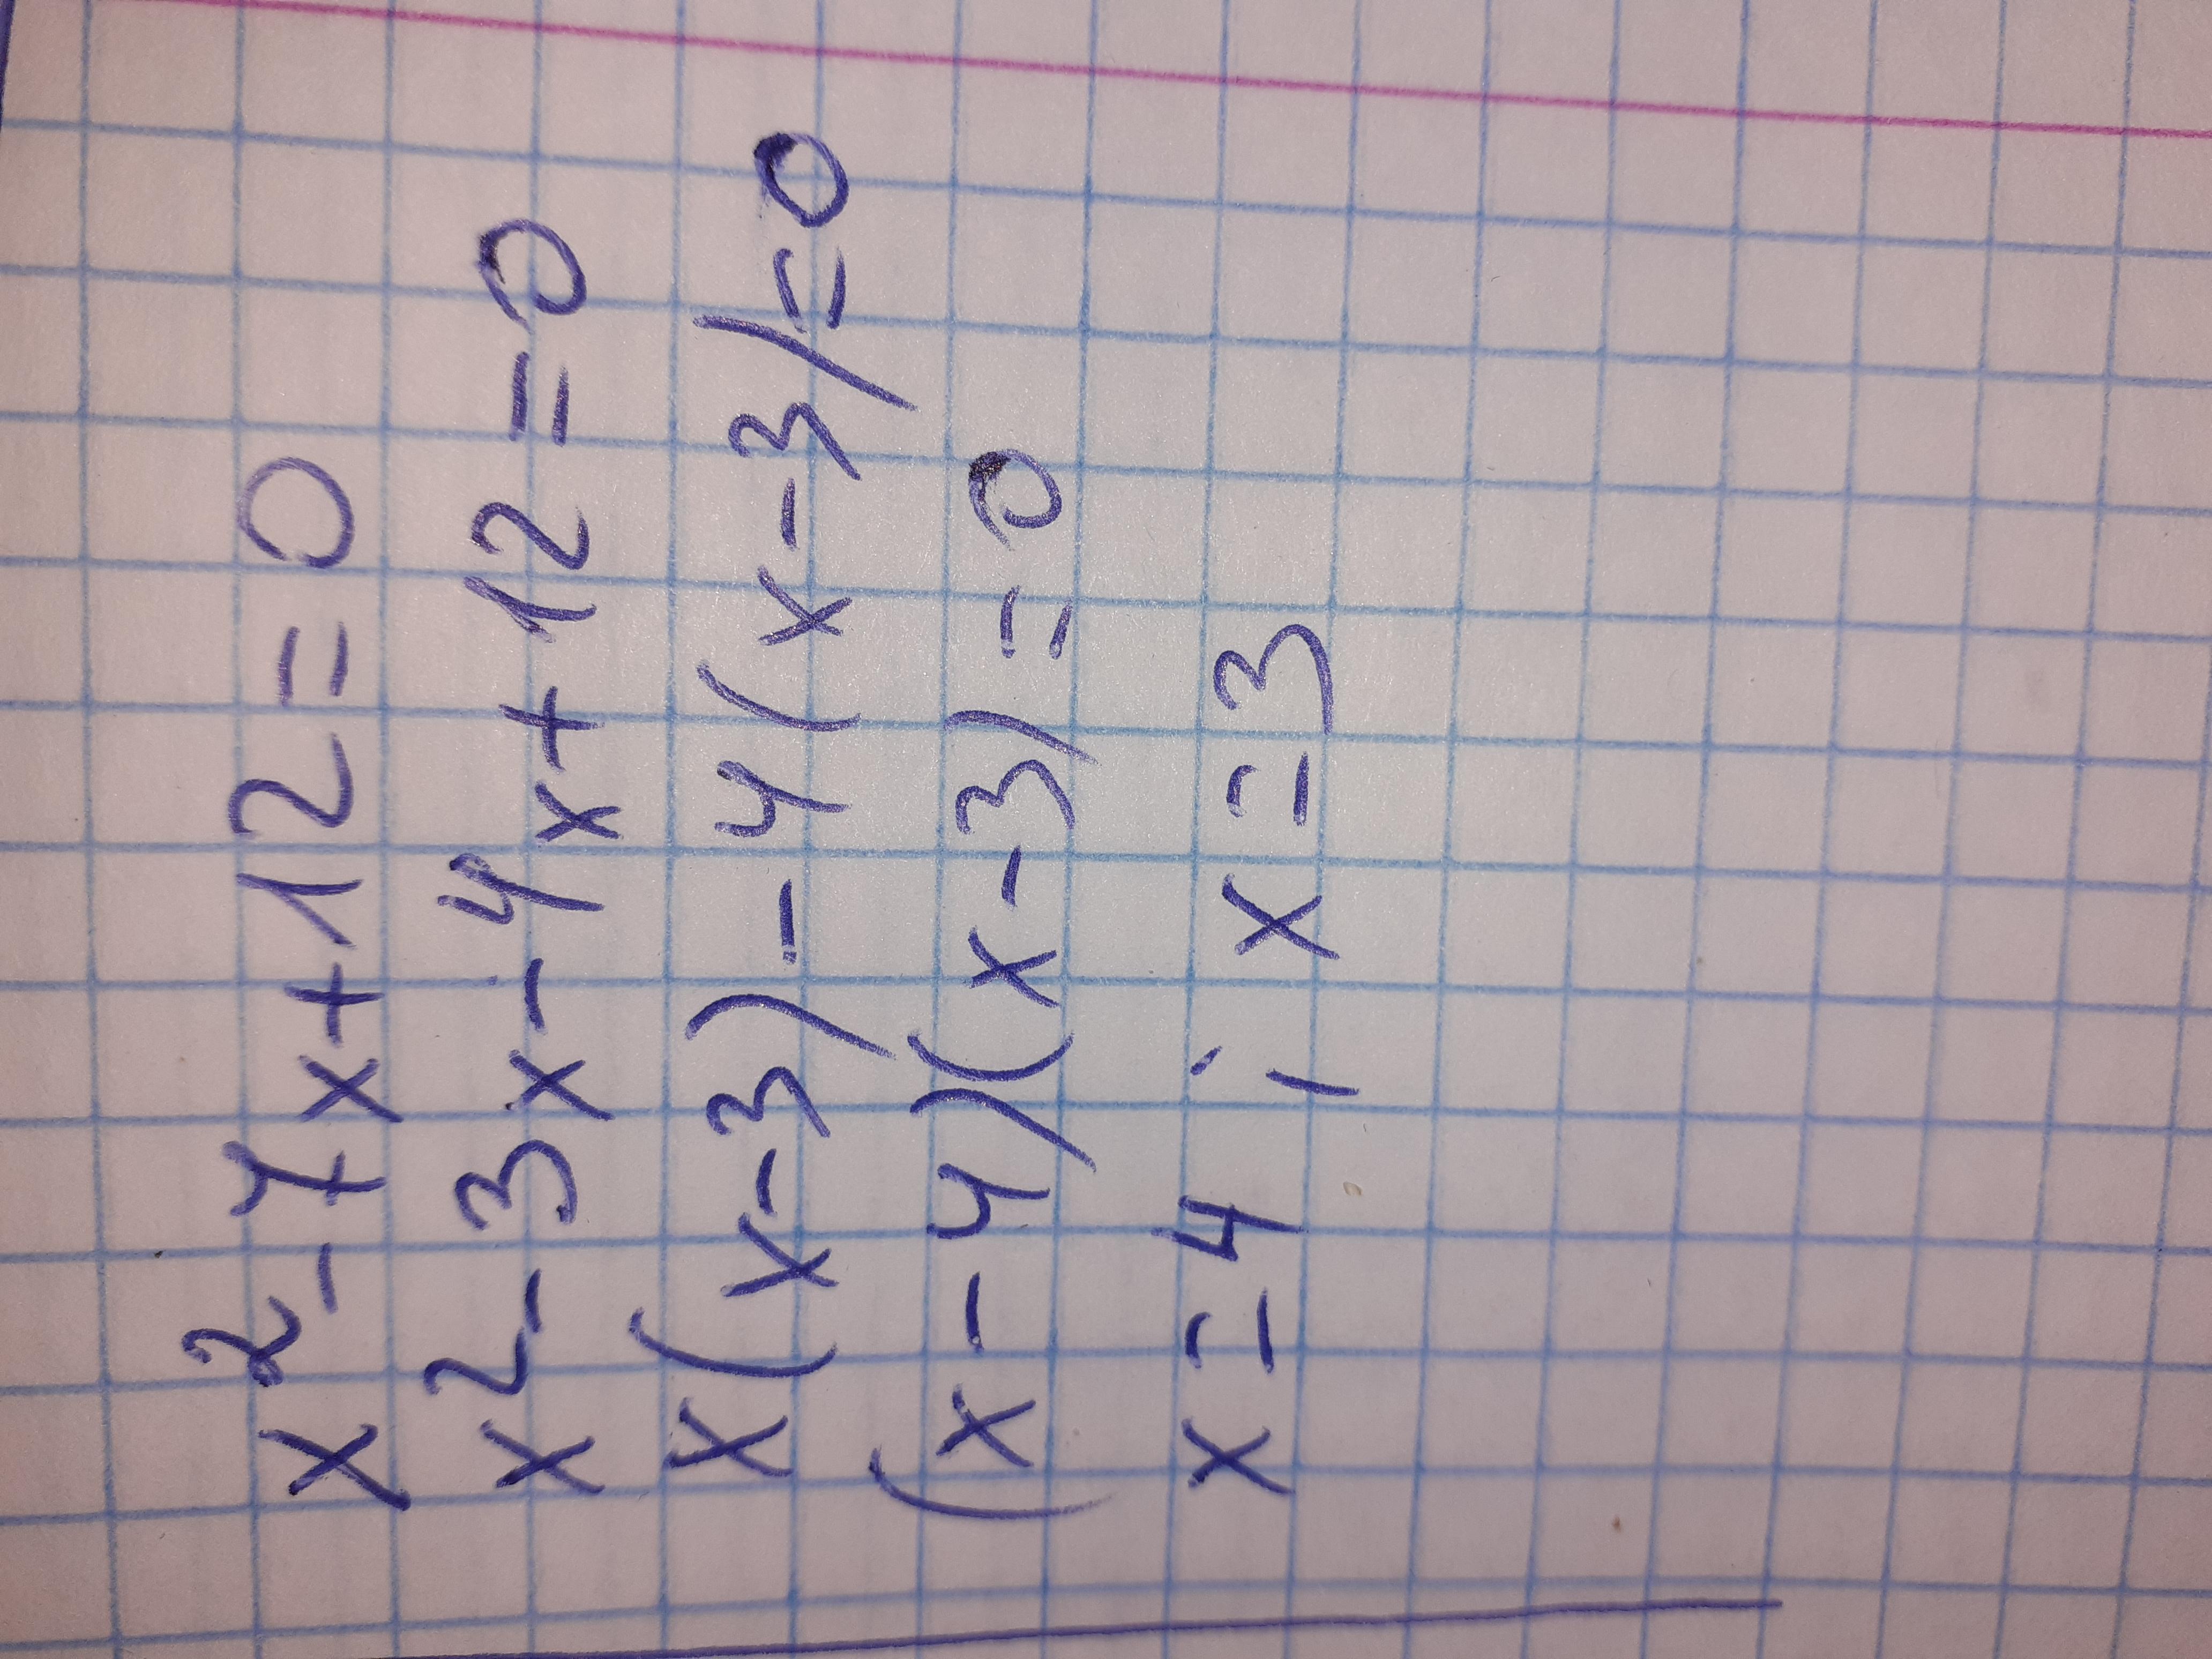 x²-7x+12=0
x²-3x-4x+12=0
x(x-3)-4(x-3)=0
(x-4)(x-3)=0
x=4; x=3